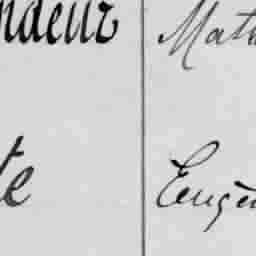 ndeur
Mat
te
Eugè